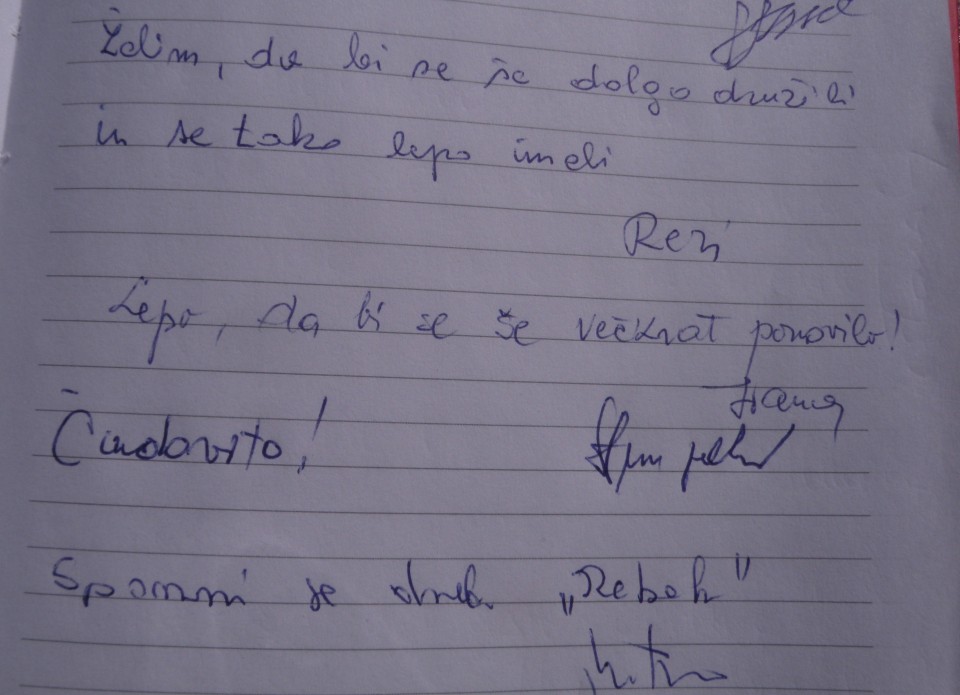 Ždim, da bi se še dolgo družili
in se tako lepo imeli
Rezi
Lepo, da bi se še večkrat ponovilo!
Čudovito!
Spomni se